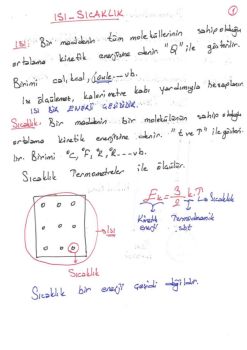 ISI-SICAKLIK
1
ISI: Bir maddenin tüm moleküllerinin sahip olduğu
ortalama kinetik enerjisine denir "Q" ile gösterilir.
Birimi cal, kcal, joule---vb.
Isı ölçülmez, kalorimetre kabı yardımıyla hesaplanır.
ISI BİR ENERJİ ÇEŞİDİDİR.
Sıcaklık: Bir maddenin bir molekülünün sahip olduğu
ortalama kinetik enerjisine denir. "t ve T" ile gösteri-
lir. Birimi °C, °F, °K, °R----vb.
Sıcaklık Termometreler ile ölçülür.
Ek = 3/2 k.T → Sıcaklık
Kinetik enerji
Termodinamik sbt
→ Isı
Sıcaklık
Sıcaklık bir enerji çeşidi değildir.